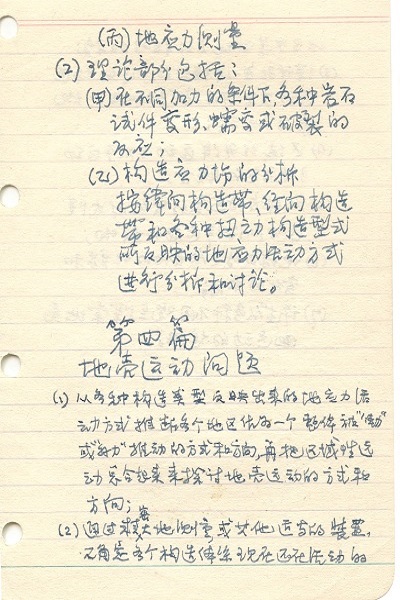 (丙)地应力测量
(2)理论部分包括：
(甲)在不同加力的条件下，各种岩石
试件变形、蠕变或破裂的
反应；
(乙)构造应力场的分析
按纬向构造带、经向构造
带和各种扭动构造型式
所反映的地应力活动方式
进行分析和讨论。
第四篇
地壳运动问题
(1)从各种构造类型反映出来的地应力活
动方式推断各个地区作为一个整体被"动"
或"力"推动的方式和方向，再把区域性运
动总合起来来探讨地壳运动的方式和
方向；
(2)通过精密大地测量或其他适当的装置，
以确定各个构造体系现在还在活动的